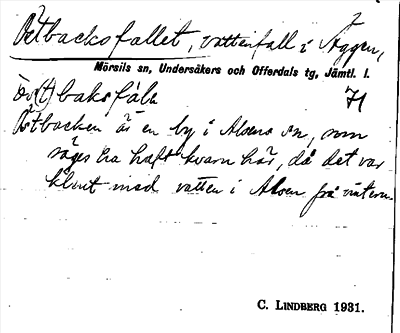 Östbacksfallet, vattenfall i Äggen,
Mörsils sn, Undersåkers och Offerdals tg, Jämtl. l.
baksfäll 71
Östbacken är en by i Alsens sn, som
säges ha haft kvarn här, då det var
klent med vatten i Alsen på vintern.
C. LINDBERG 1931.